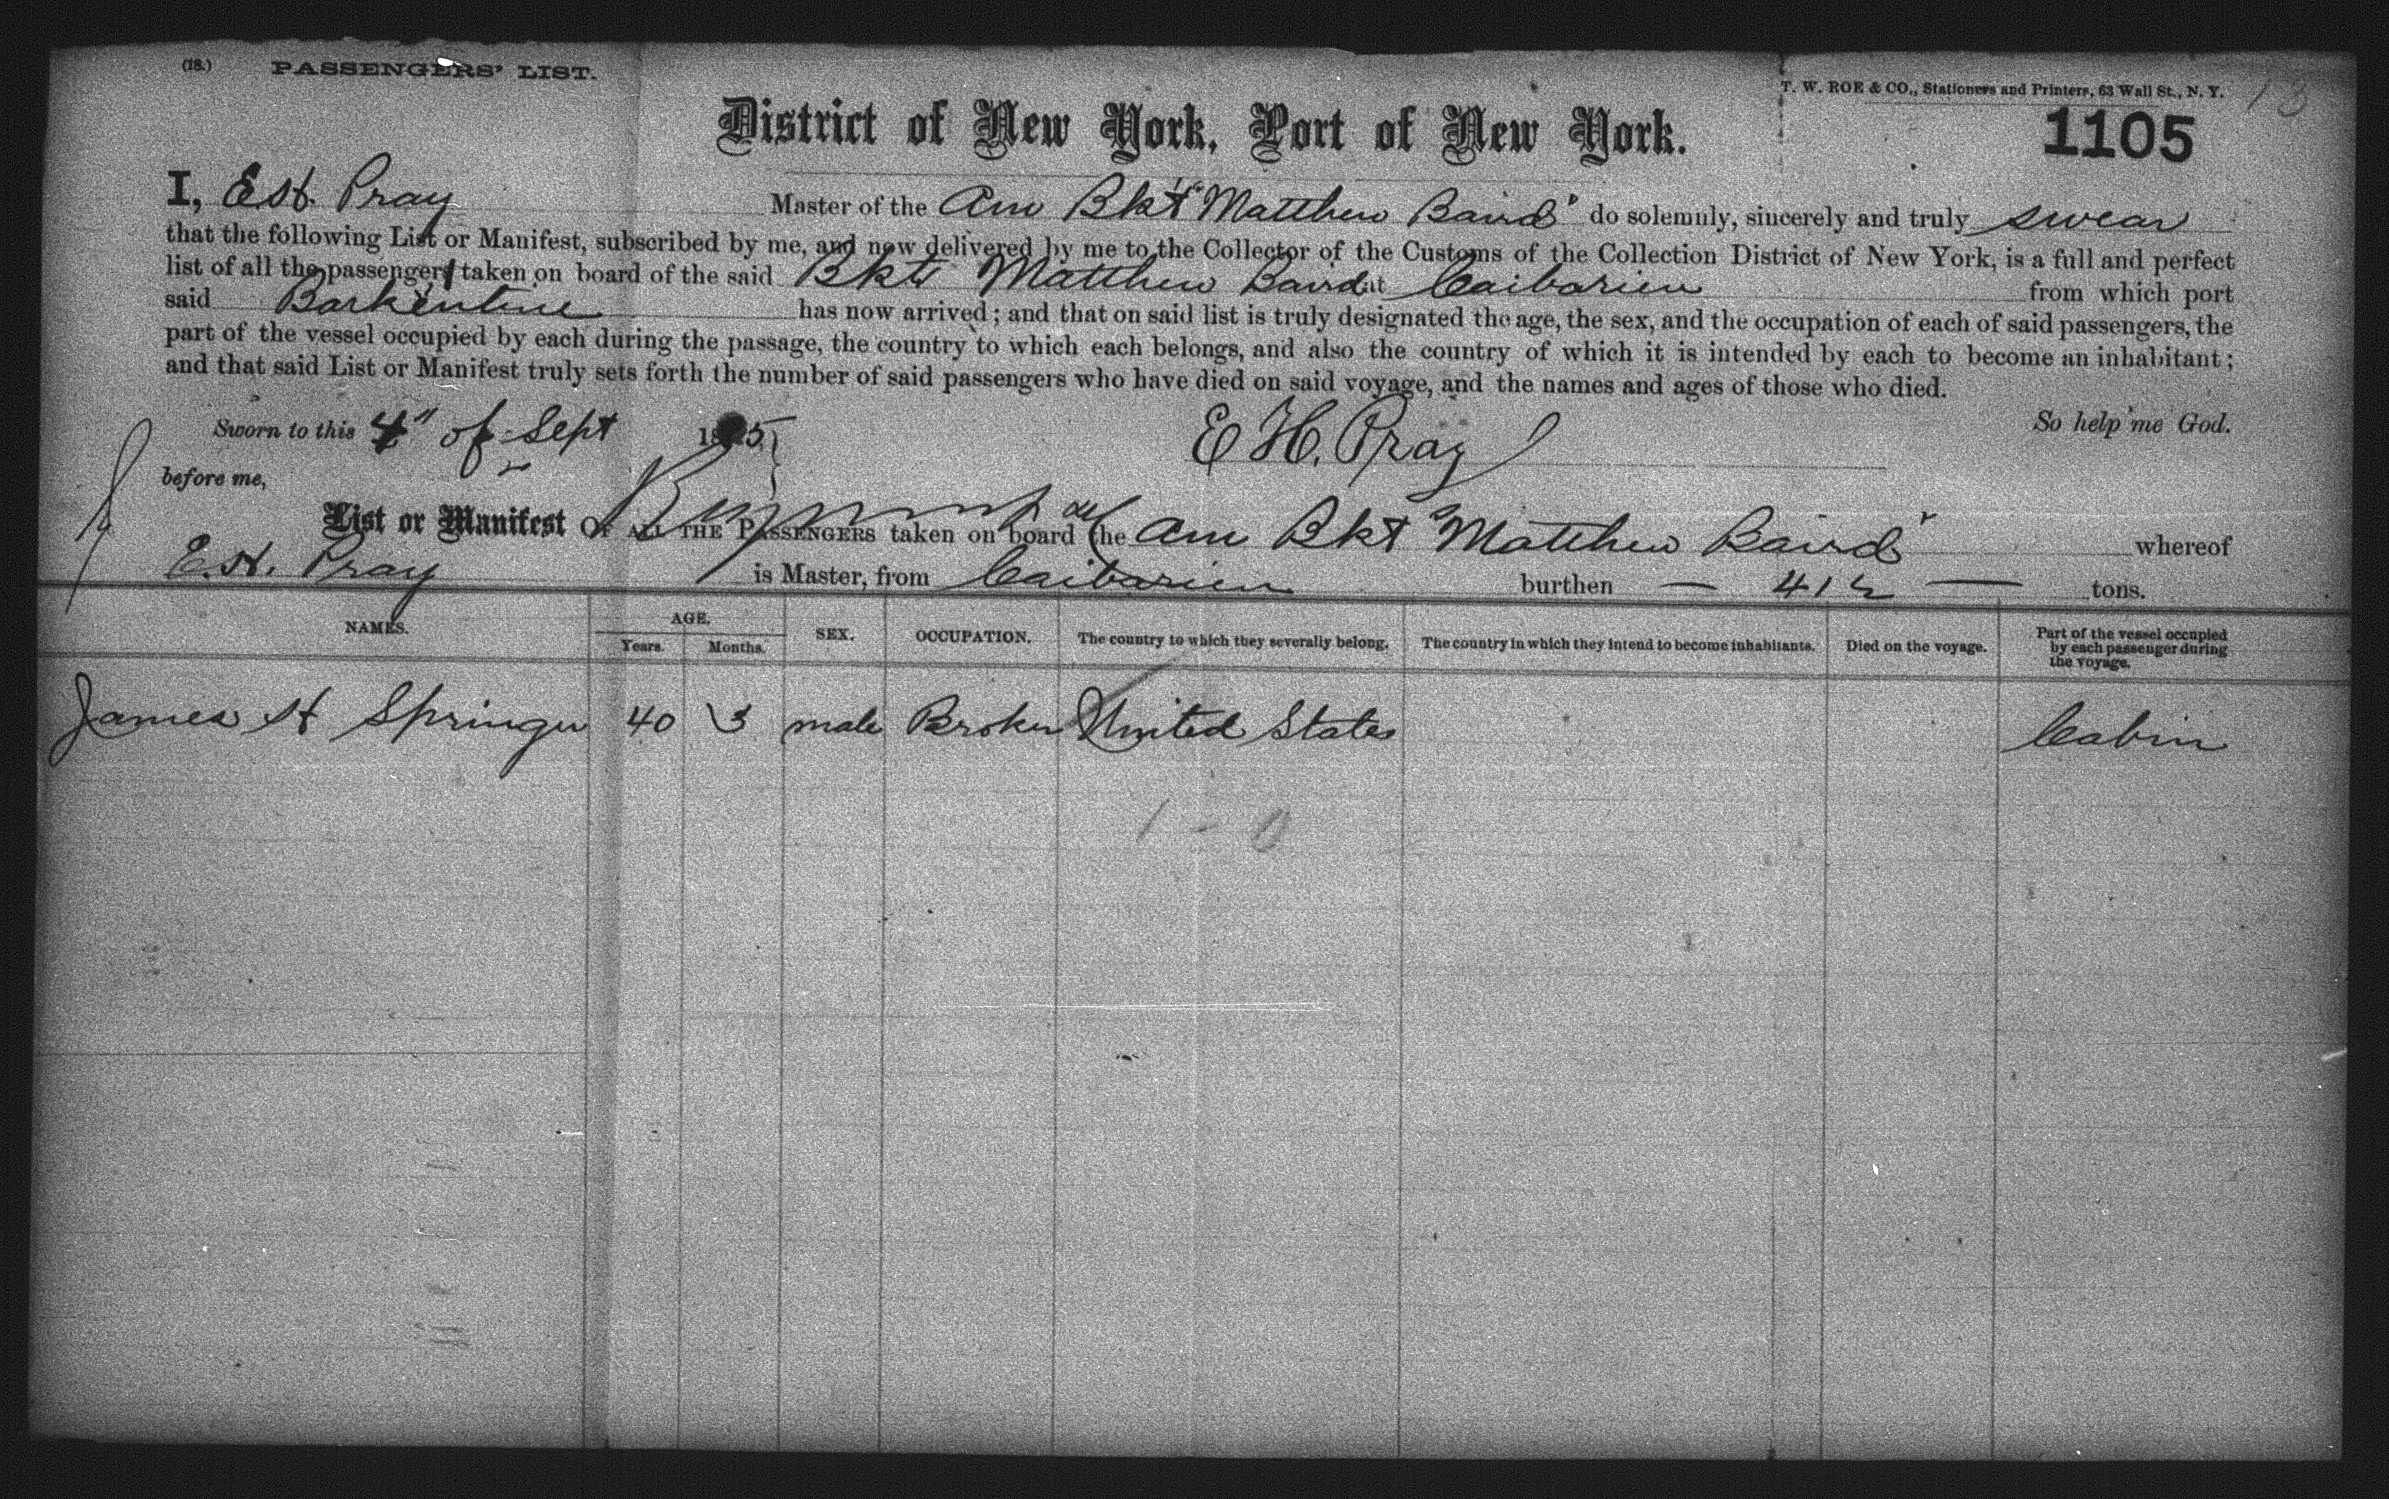 (18.) PASSENGERS' LIST.
T. W. ROE & CO., Stationers and Printers, 63 Wall St., N. Y. 13
District of New York, Port of New York.
1105
I, E. H. Pray Master of the Am Bkt "Matthew Baird" do solemnly, sincerely and truly swear
that the following List or Manifest, subscribed by me, and now delivered by me to the Collector of the Customs of the Collection District of New York, is a full and perfect
list of all the passengers taken on board of the said Bkt Matthew Baird at Caibarien from which port
said Barkentine has now arrived; and that on said list is truly designated the age, the sex, and the occupation of each of said passengers, the
part of the vessel occupied by each during the passage, the country to which each belongs, and also the country of which it is intended by each to become an inhabitant;
and that said List or Manifest truly sets forth the number of said passengers who have died on said voyage, and the names and ages of those who died.
Sworn to this 4" of Sept 18 5 E H. Pray So help me God.
before me,
List or Manifest OF ALL THE PASSENGERS taken on board the Am Bkt "Matthew Baird" whereof
E. H. Pray is Master, from Caibarien burthen — 412 — tons.
NAMES. AGE. Years. Months. SEX. OCCUPATION. The country to which they severally belong. The country in which they intend to become inhabitants. Died on the voyage. Part of the vessel occupied by each passenger during the voyage.
James H Springer 40 3 male Broker United States Cabin
1 - 0